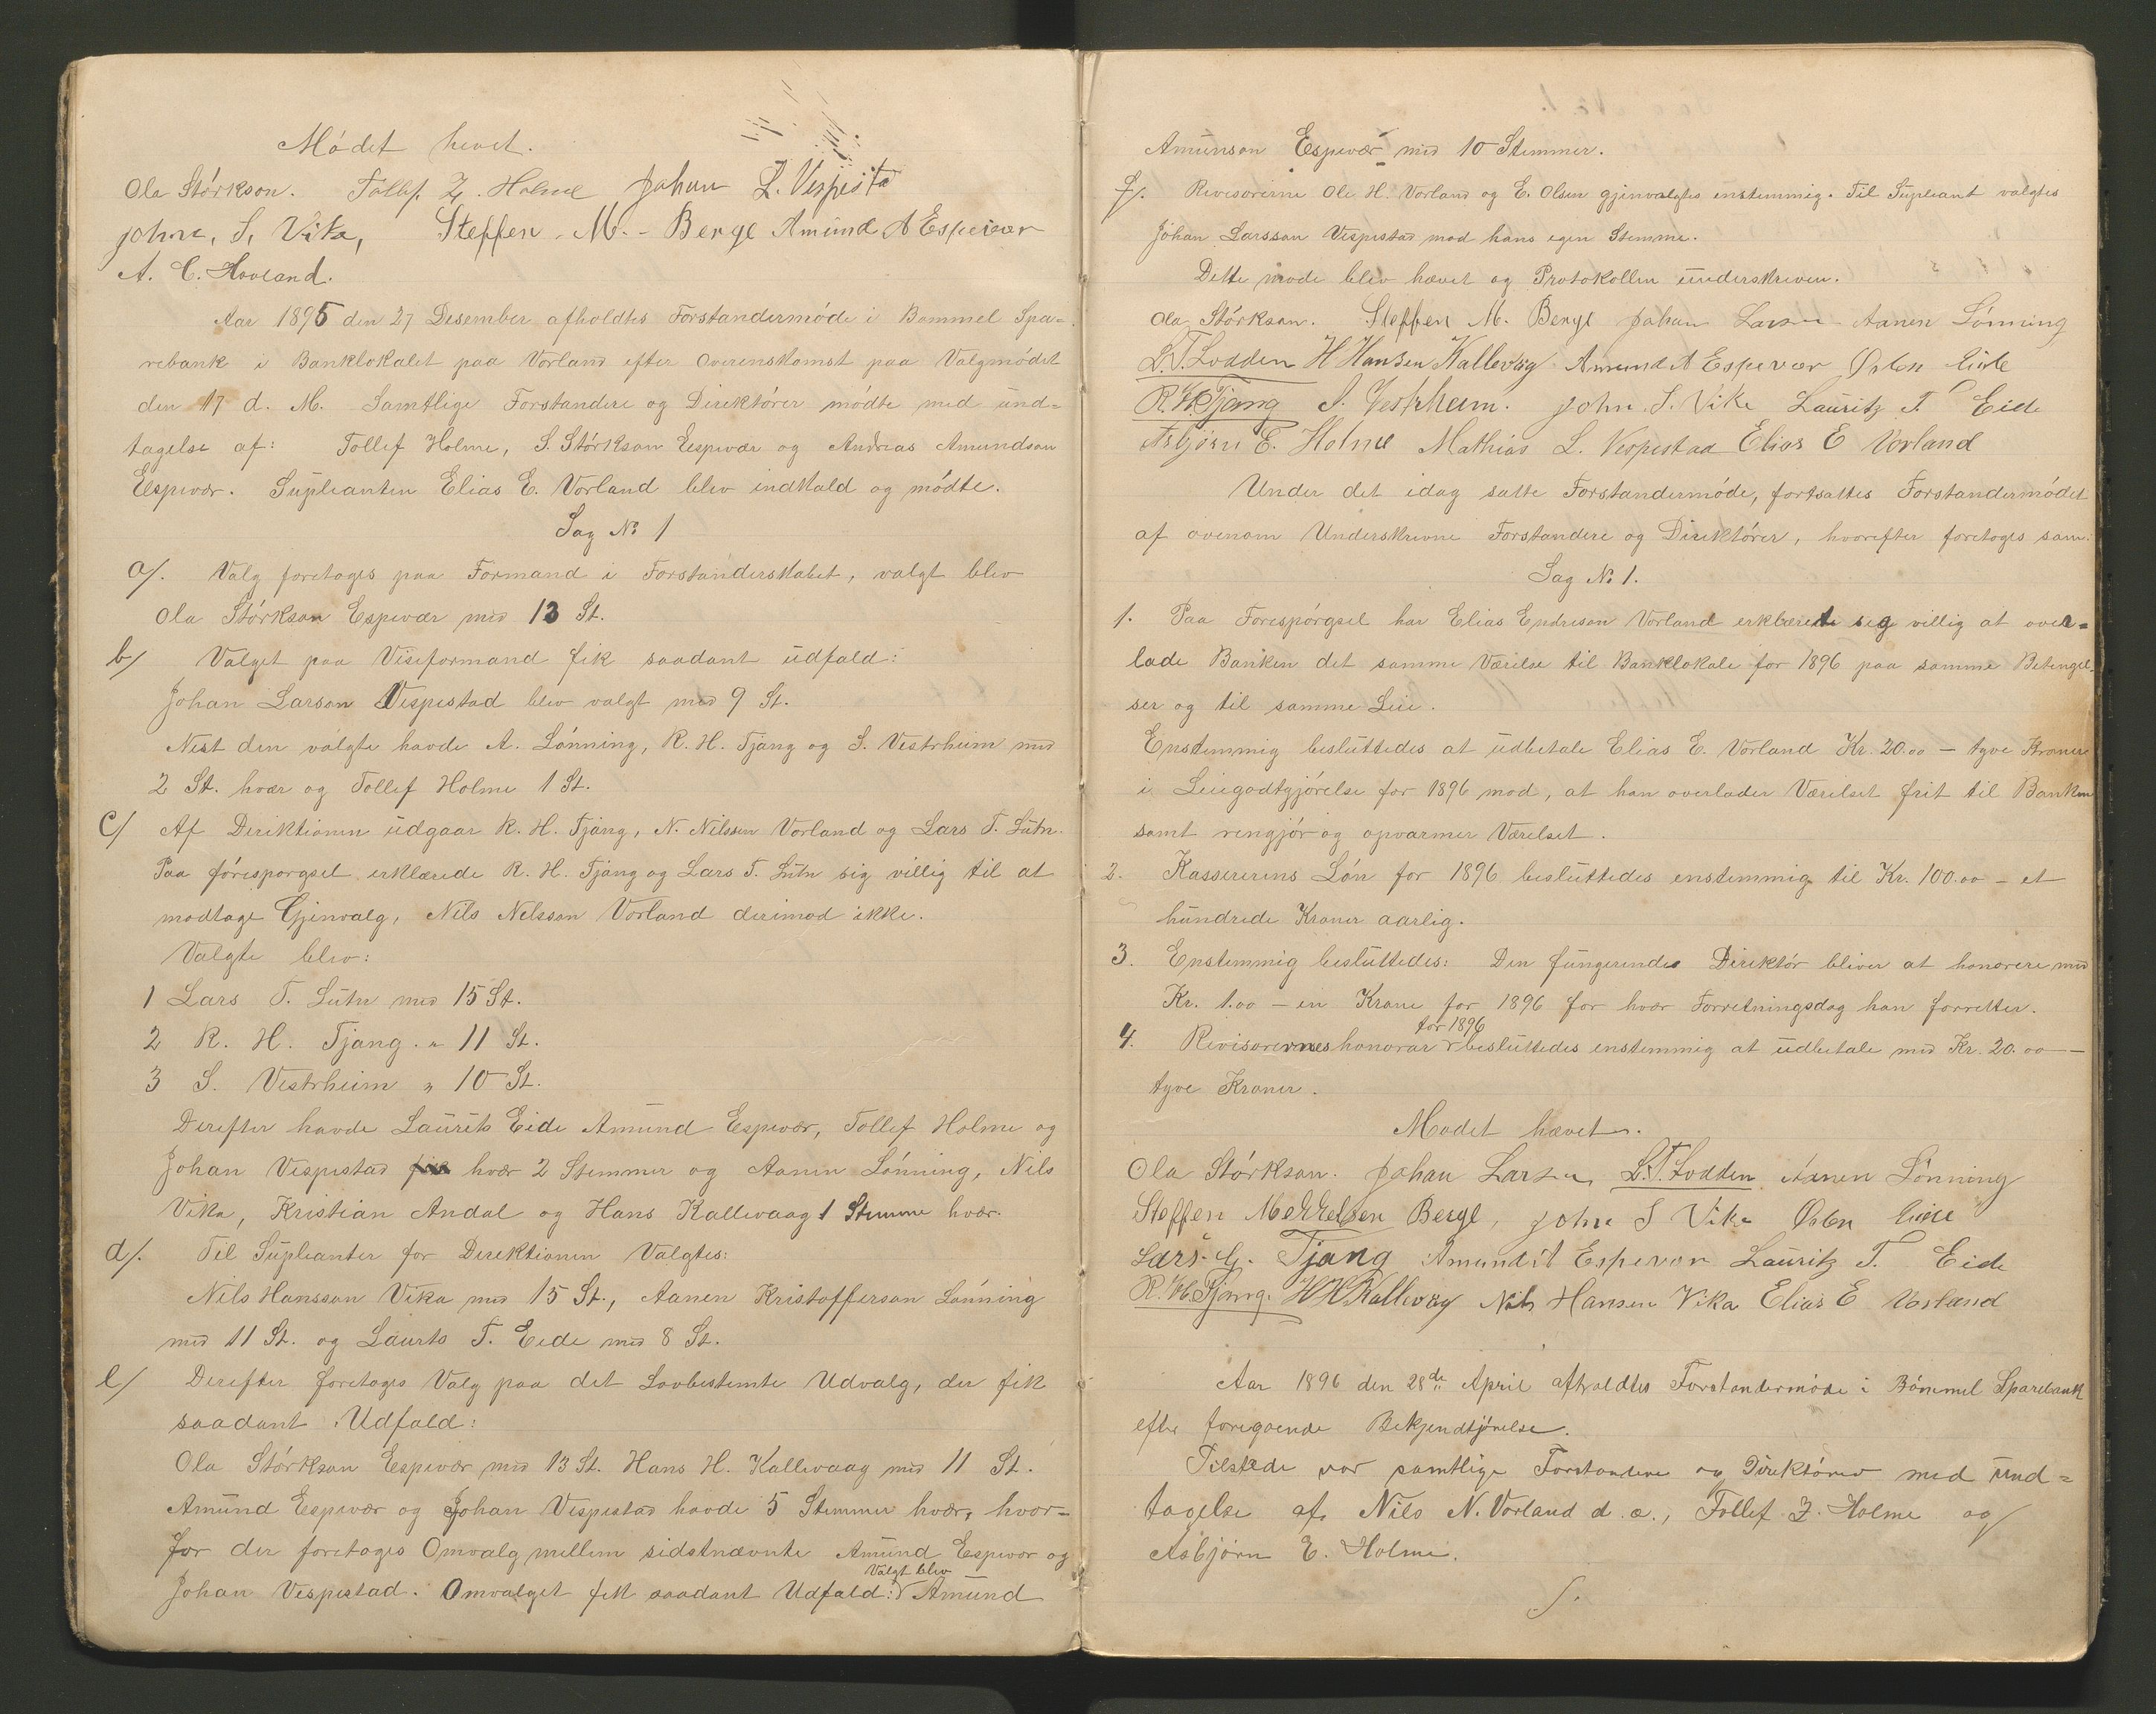 Mødet hevet.
Ola Størkson. Tollef. Z. Holme Johan L. Vespesta
john, S, Vika, Steffen. M. - Berge Amund A Espevær
A. C. Hovland.
Aar 1895 den 27 Desember afholdtes Forstandermøde i Bømmel Spa-
rebank i Banklokalet paa Vorland efter Overenskomst paa Valgmødet
den 17 d. M. Samtlige Forstandere og Direktører mødte med und=
tagelse af: Tollef Holme, S. Størkson Espevær og Andreas Amundson
Espevær. Supleanten Elias E. Vorland blev indkald og mødte.
Sag No 1
a/. Valg foretoges paa Formand i Forstanderskabet, valgt blev
Ola Størkson Espevær med 13 St.
b/ Valget paa Viseformand fik saadant udfald:
Johan Larson Vespestad blev valgt med 9 St.
Nest den valgte havde A. Lønning, R. H. Tjang og S. Vestrheim med
2 St. hvær og Tollef Holme 1 St.
c/ Af Direktionen udgaar R. H. Tjang, N. Nilssen Vorland og Lars T. Lutn.
Paa førespørgsel erklærede R. H. Tjang og Lars T. Lutn sig villig til at
modtage Gjenvalg, Nils Nelsson Vorland derimod ikke.
Valgte blev:
1 Lars T. Lutn med 15 St.
2 R. H. Tjang. " 11 St.
3 S. Vestrheim " 10 St.
Derefter havde Laurits Eide Amund Espevær, Tollef Holme og
Johan Vespestad hvær 2 Stemmer og Aanen Lønning, Nils
Vika, Kristian Andal og Hans Kallevaag 1 Stemme hvær.
d/. Til Supleanter for Direktionen Valgtes:
Nils Hansson Vika med 15 St., Aanen Kristofferson Lønning
med 11 St. og Laurts T. Eide med 8 St.
e/ Derefter foretoges Valg paa det Lovbestemte Udvalg, der fik
saadant Udfald:
Ola Størkson Espevær med 13 St. Hans H. Kallevaag med 11 St.
Amund Espevær og Johan Vespestad havde 5 Stemmer hvær, hvor=
for der foretoges Omvalg mellem sidstnævnte Amund Espevær og
Valgt blev
Johan Vespestad. Omvalget fik saadant Udfald: Amund
Amunson Espevær med 10 Stemmer.
f/. Revisorerne Ole H. Vorland og E. Olsen gjenvalgtes enstemmig. Til Supleant valgtes
Johan Larsson Vespestad mod hans egen Stemme.
Dette møde blev hævet og Protokollen underskreven.
Ola Størkson. Steffen M. Berge Johan Larsen Aanen Lønning
L. T. Lodden H Hansen Kallevåg Amund A Espevær Østen Eide
R. H. Tjang S. Vestrheim. john. S. Vike Lauritz T. Eide
Asbjørn E. Holme Mathias L. Vespestaa Elias E Vorland
Under det idag satte Forstandermøde, fortsattes Forstandermødet
af ovenom Underskrevne Forstandere og Direktører, hvorefter foretoges som:
Sag No 1.
1. Paa Forespørgsel har Elias Endreson Vorland erklæret seg villig at over=
lade Banken det samme Værelse til Banklokale for 1896 paa samme Betengel-
ser og til samme Leie.
Enstemmig besluttedes at udbetale Elias E. Vorland Kr. 20.00 – tyve Kroner
i Leiegodtgjørelse for 1896 mod, at han overlader Værelset frit til Banken
samt rengjør og opvarmer Værelset.
2. Kassererens Løn for 1896 besluttedes enstemmig til Kr. 100.00 – et
hundrede Kroner aarlig.
3. Enstemmig besluttedes: Den fungerendes Direktør bliver at honorere med
Kr. 1.00 – en Krone for 1896 for hvær Forretningsdag han forretter.
for 1896
4. Revisorernes honorar besluttedes enstemmig at udbetale med Kr. 20.00 –
tyve Kroner.
Mødet hævet.
Ola Størkson. Johan Larsen L. T. Lodden Aanen Lønning
Steffen Mekkelsen Berge, john S Vike Østen Eide
Lars. G. Tjang Amund A Espevær Lauritz T. Eide
R. H. Tjang. H H Kallevåg Nils Hansen Vika Elias E Vorland
Aar 1896 den 28de April afholdtes Forstandermøde i Bömmel Sparebank
efter foregaende Bekjendtjørelse.
Tilstede var samtlige Forstandere og Direktører med und=
tagelse af Nils N. Vorland d. æ., Tollef Z. Holme og
Asbjørn E. Holme.